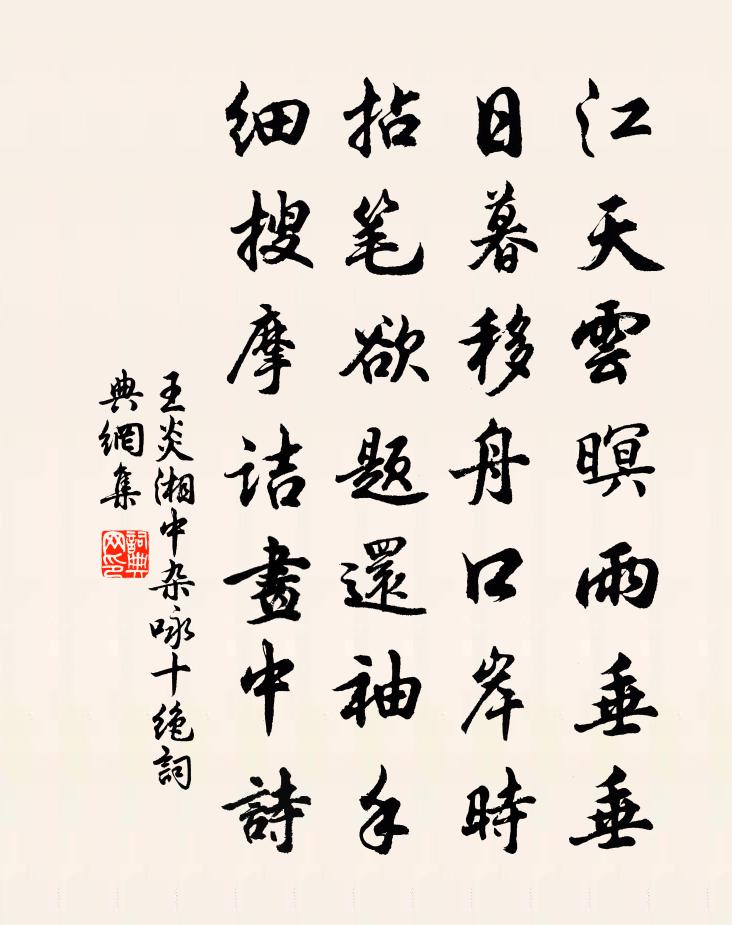 江天雲暝雨垂垂
日暮移舟口岸時
拈笔欲题還袖手
细搜摩诘畫中詩
王炎湘中杂咏十绝詞
典網集
詞典网印